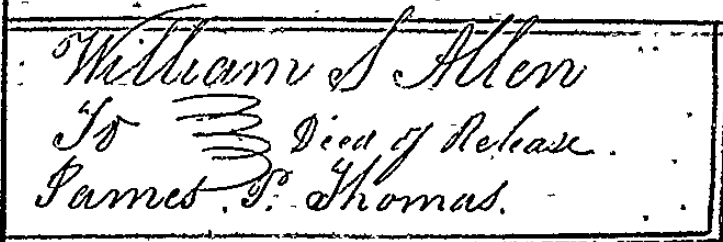 William S Allen
To Deed of Release.
James. P. Thomas.